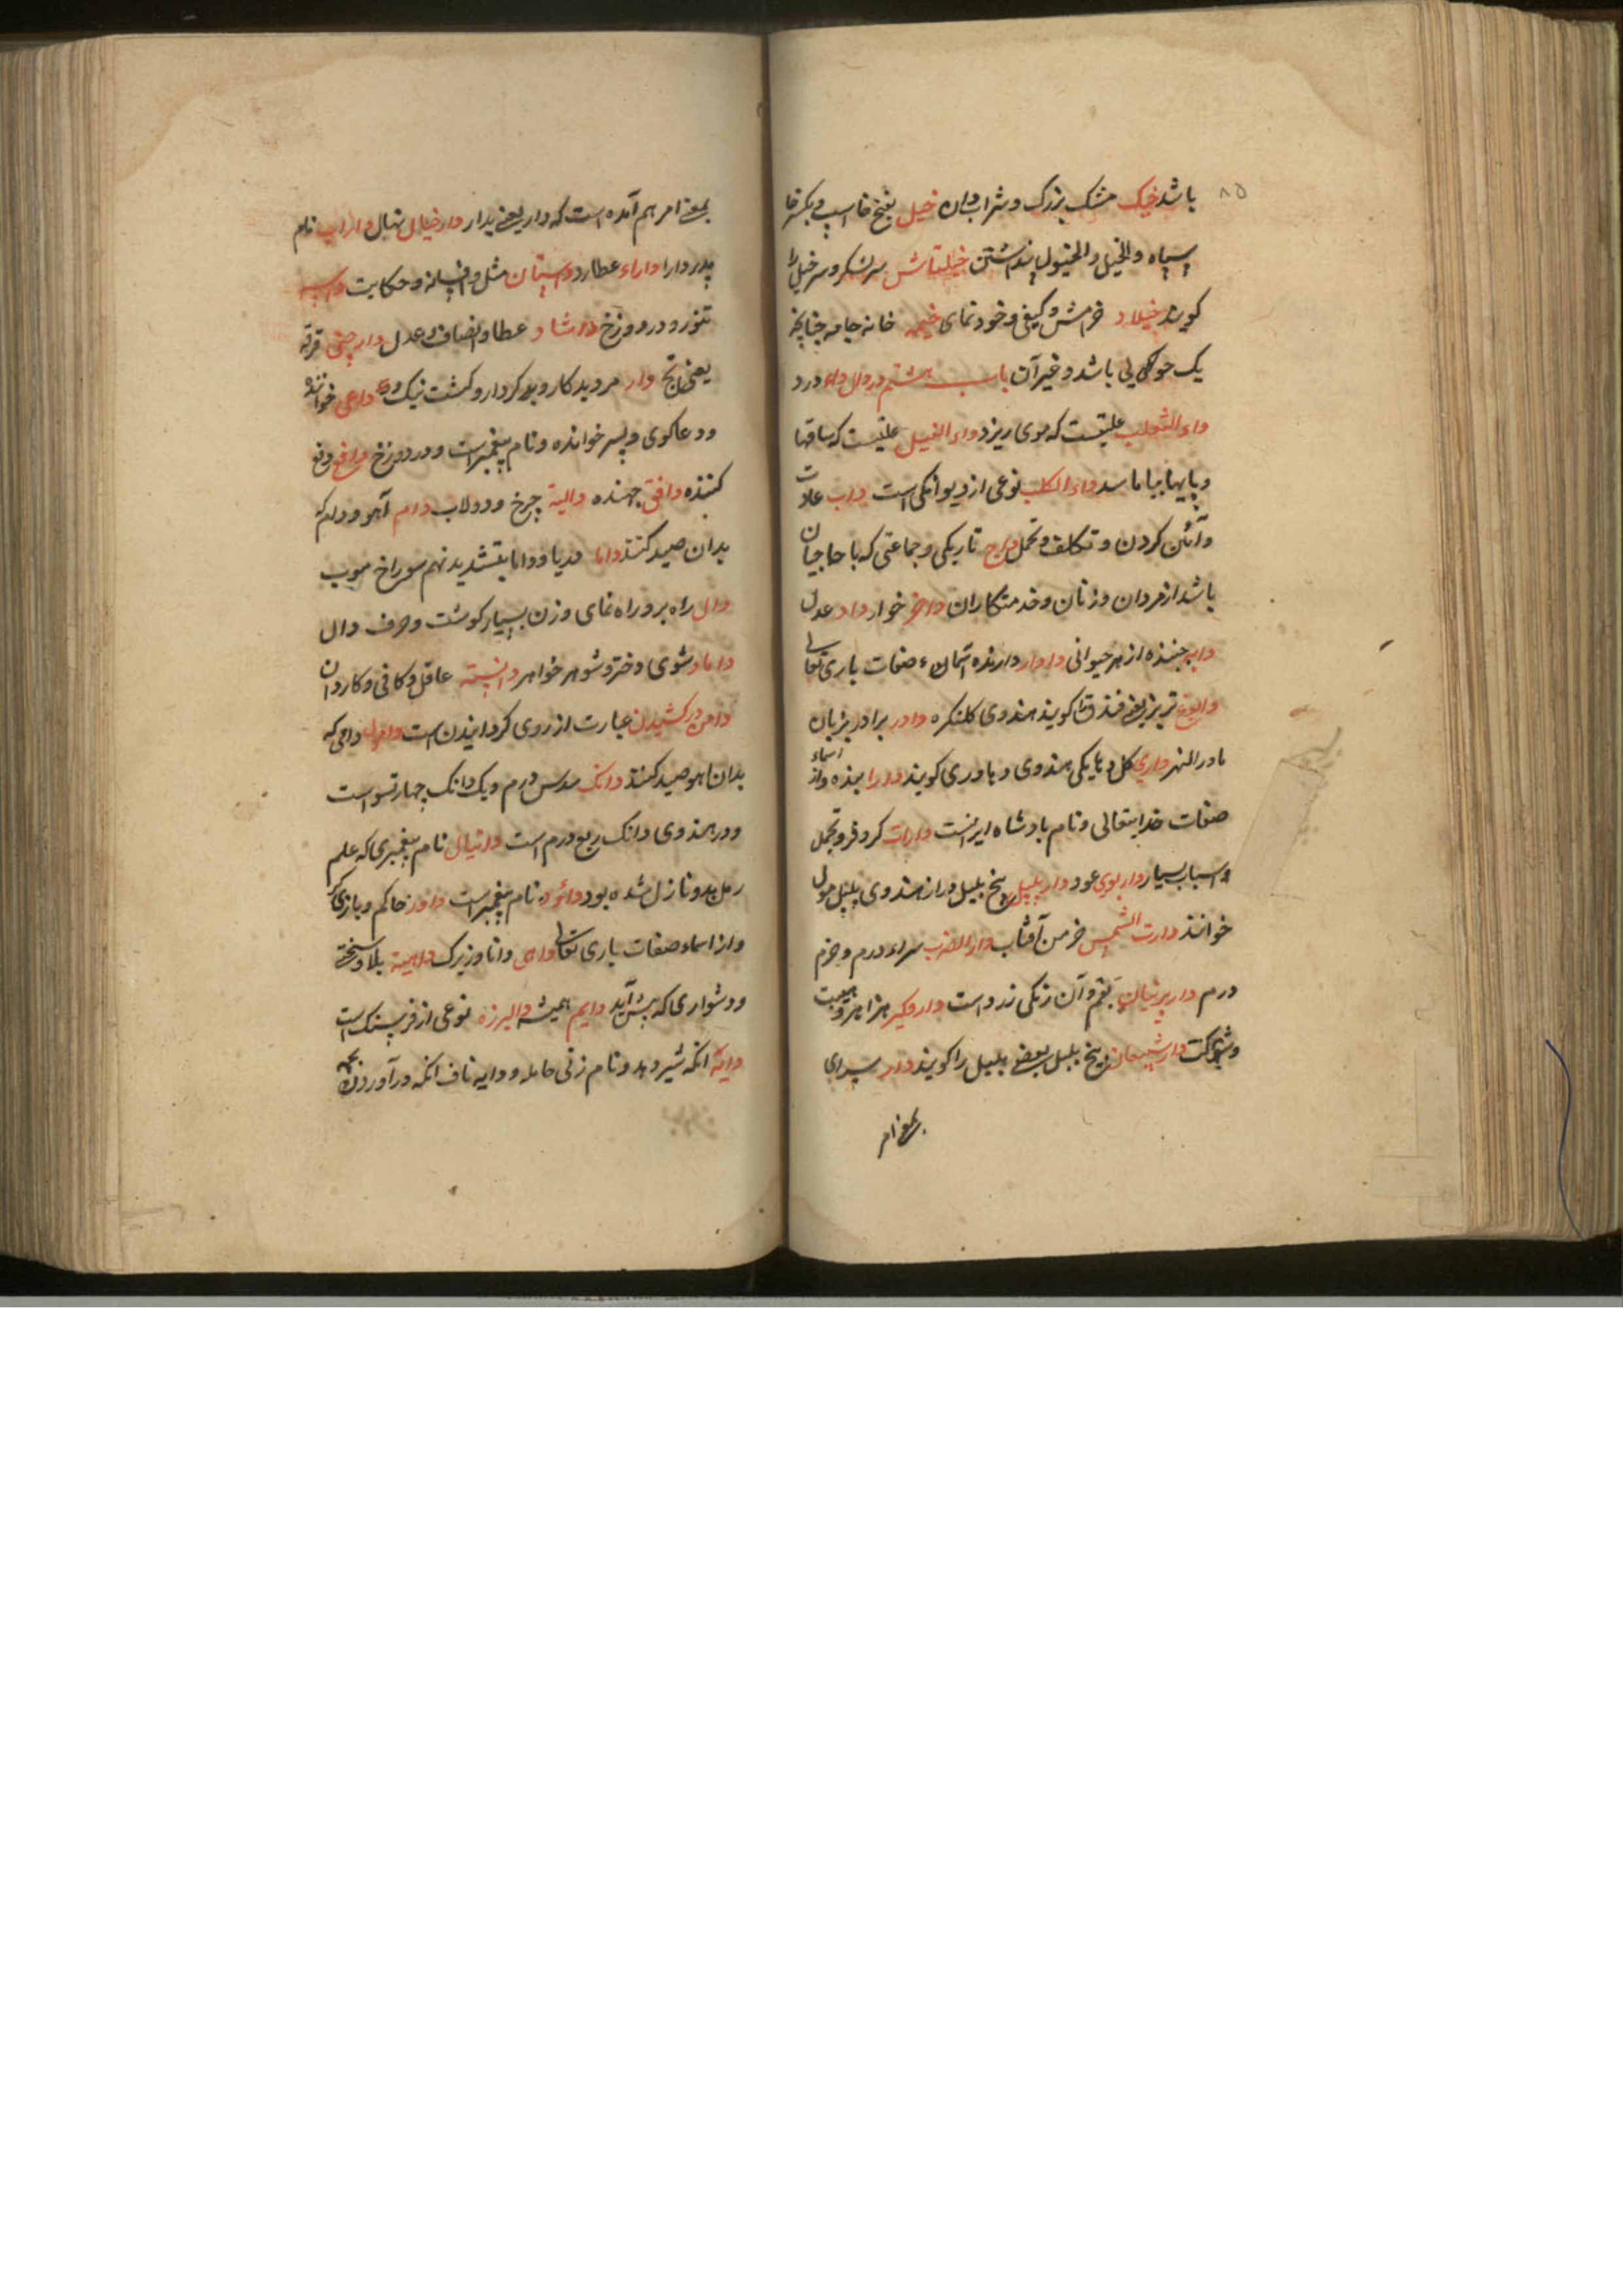 ۸۵
باشد خیک مشک بزرک و شراب دان خیل بفتح خا اسپ و بکسر خا
سپاه والخیل والخیول پنداشتن خیلتاش سرلشکر و سر خیل را
کویند خیلاد خرامش و کیفی و خودنمای خیمه خانه جامه چنانچه
یک چوکی باشد و غیر آن باب هشتم در دال داء درد
داء الثعلب علتیست که موی ریزد داء الفیل علتیست که ساقها
و پایها بیاماسد داء الکلب نوعی از دیوانکی است داب عادت
و آئین کردن و تکلف و تحمل داج تاریکی و جماعتی که با حاجیان
باشد از مردان و زنان و خدمتکاران داخر خوار داد عدل
دابه جنبنده از هر حیوانی داوار دارنده آسمان صفات باری تعالی
تریز یعنی فندق را کویند هندوی کلنکره دادر برادر بزبان
مادر النهر داری کل دیایکی هندوی و باوری کویند دارا بنده و از اسماء
صفات خدایتعالی و نام بادشاه ایرانست دارات کر و فر و تجمل
و اسباب بسیار دار بوی عود دار بلبل بیخ بلبل دراز هندوی پلپل مول
خوانند دارت الشمس خرمن آفتاب دار الضرب سراء درم و خرم
درم دار پرنیان بقم و آن رنکی زرد است دار وکیر هزاهز و هیبت
و شوکت دار شیعان بیخ بلبل و بعضی بلبل را کویند دار سرای
بمعنی امر
بمعنی امر هم آمده است که دار یعنی بدار دار خیال نهال داراب نام
پدر دارا داراء عطارد داستان مثل و افسانه و حکایت
تنور و در دوزخ داشاد عطا و انصاف و عدل دار چینی قرفه
یعنی تج دار مرد بدکار و بدکردار و کشت نیک داعی خواننده
و دعاکوی و پسر خوانده و نام پیغمبر است و در دوزخ دافع دفع
کننده دافق جهنده دالیة چرخ و دولاب دام آهو و دام که
بدان صید کنند داما دریا و داما بتشدید نهم سوراخ موب
دال راه بر و راه نمای و زن بسیار کوشت و حرف دال
داماد شوی دختر و شوهر خواهر دانسته عاقل و کافی و کاردان
دامن درکشیدن عبارت از روی کردانیدن است داهول دامی که
بدان آهو صید کنند دانک سدس درم و یک دانک چهار تسو است
و در هندوی دانک ربع درم است دانیال نام پیغمبری که علم
رمل بدو نازل شده بود داؤد نام پیغمبر است داور حاکم و باری تعالی
و از اسماء صفات باری تعالی داهی دانا و زیرک داهیة بلا و سختی
و دشواری که پیش آید دایم همیشه دالبرزه نوعی از فرستک است
دایه آنکه شیر دهد و نام زنی حامله و دایه ناف آنکه در آوردن بچه